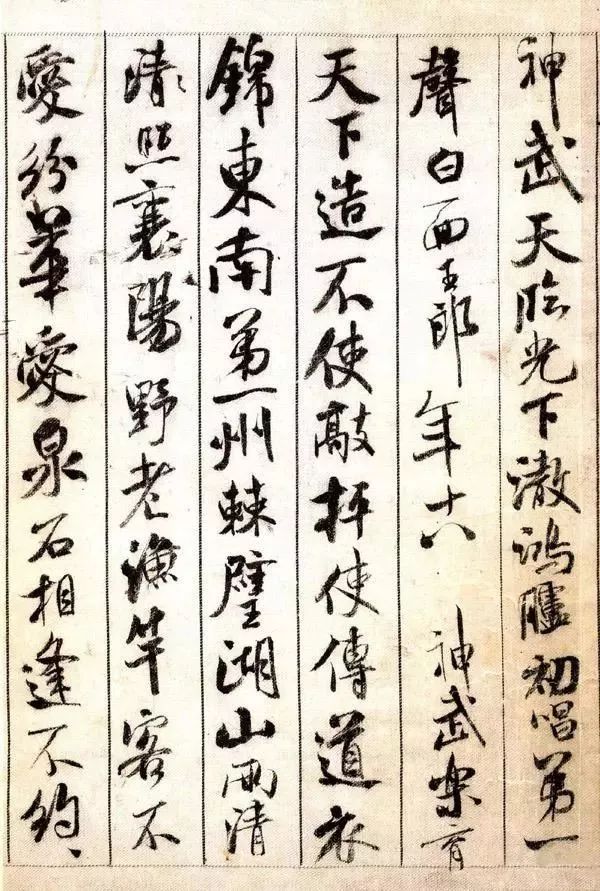 神武天臨光下澈鴻臚初唱第一
聲白面王郎年十八神武樂育
天下造不使敲抨使傳道衣
錦東南第一州棘璧湖山兩清
清照襄陽野老漁竿客不
愛紛華愛泉石相逢不約、